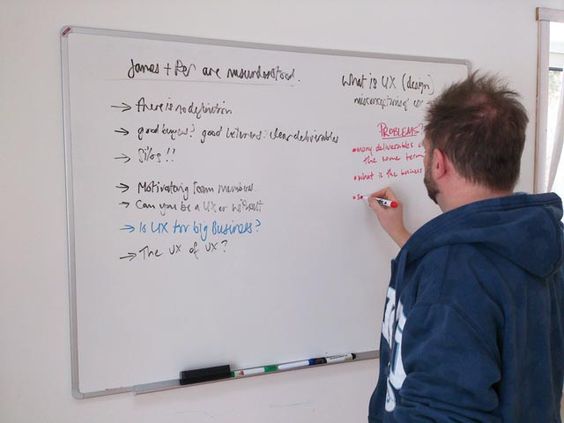 James + Per are misunderstood.
→ there is no definition
→ good buyers? good listeners: clear deliverables
→ Silos!!
→ Motivating team members
→ Can you be a UXer without
→ Is UX for big Business?
→ The UX of UX?
What is UX (design)
misconceptions of
PROBLEMS?
• many deliverables
the same term
• what is the business